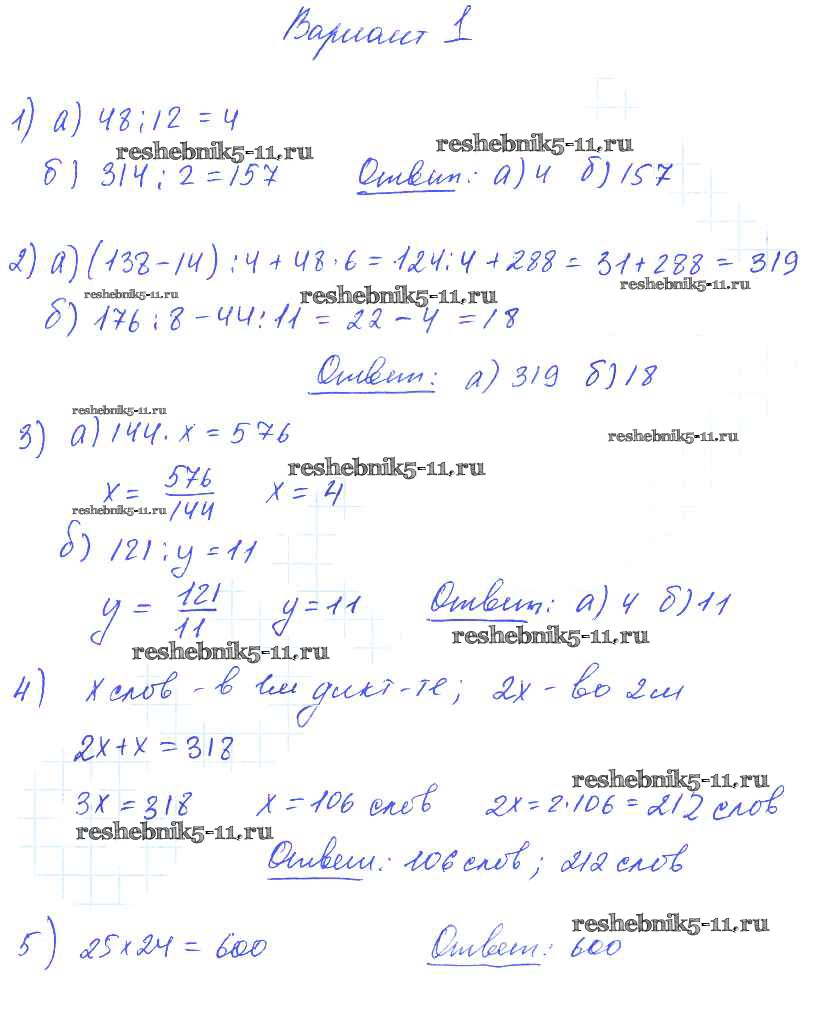 Вариант 1
1) а) 48 : 12 = 4
reshebnik5-11.ru reshebnik5-11.ru
б) 314 : 2 = 157 Ответ: а) 4 б) 157
2) а) (138 - 14) : 4 + 48 · 6 = 124 : 4 + 288 = 31 + 288 = 319
reshebnik5-11.ru reshebnik5-11.ru reshebnik5-11.ru
б) 176 : 8 - 44 : 11 = 22 - 4 = 18
Ответ: а) 319 б) 18
reshebnik5-11.ru
3) а) 144 · x = 576 reshebnik5-11.ru
reshebnik5-11.ru
x = 576/144 x = 4
reshebnik5-11.ru
б) 121 : y = 11
y = 121/11 y = 11 Ответ: а) 4 б) 11
reshebnik5-11.ru reshebnik5-11.ru
4) x слов - в 1м дикт-те; 2x - во 2м
2x + x = 318
reshebnik5-11.ru
3x = 318 x = 106 слов 2x = 2 · 106 = 212 слов
reshebnik5-11.ru
Ответ: 106 слов; 212 слов
reshebnik5-11.ru
5) 25 × 24 = 600 Ответ: 600